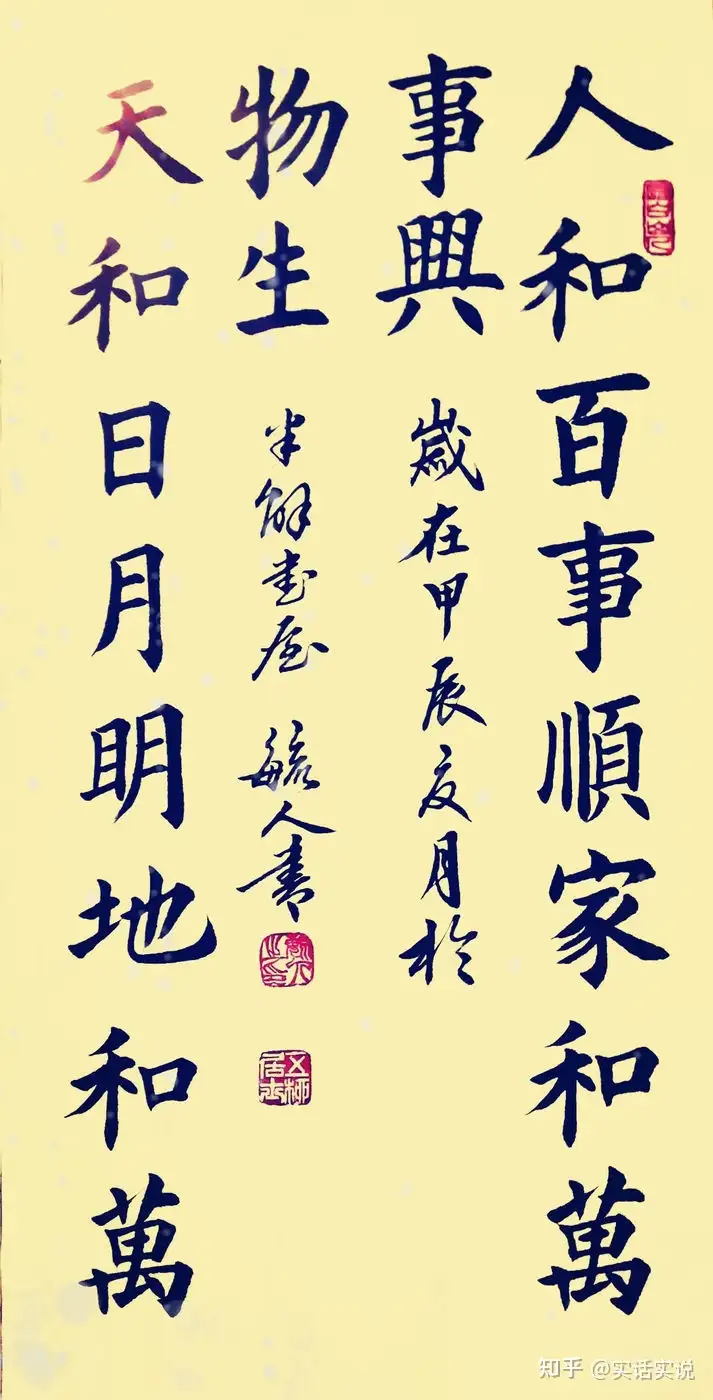 人和百事順家和萬
事興
天和日月明地和萬
物生
歲在甲辰夏月於
半解書屋 毓人書
五柳居士
知乎 @实话实说